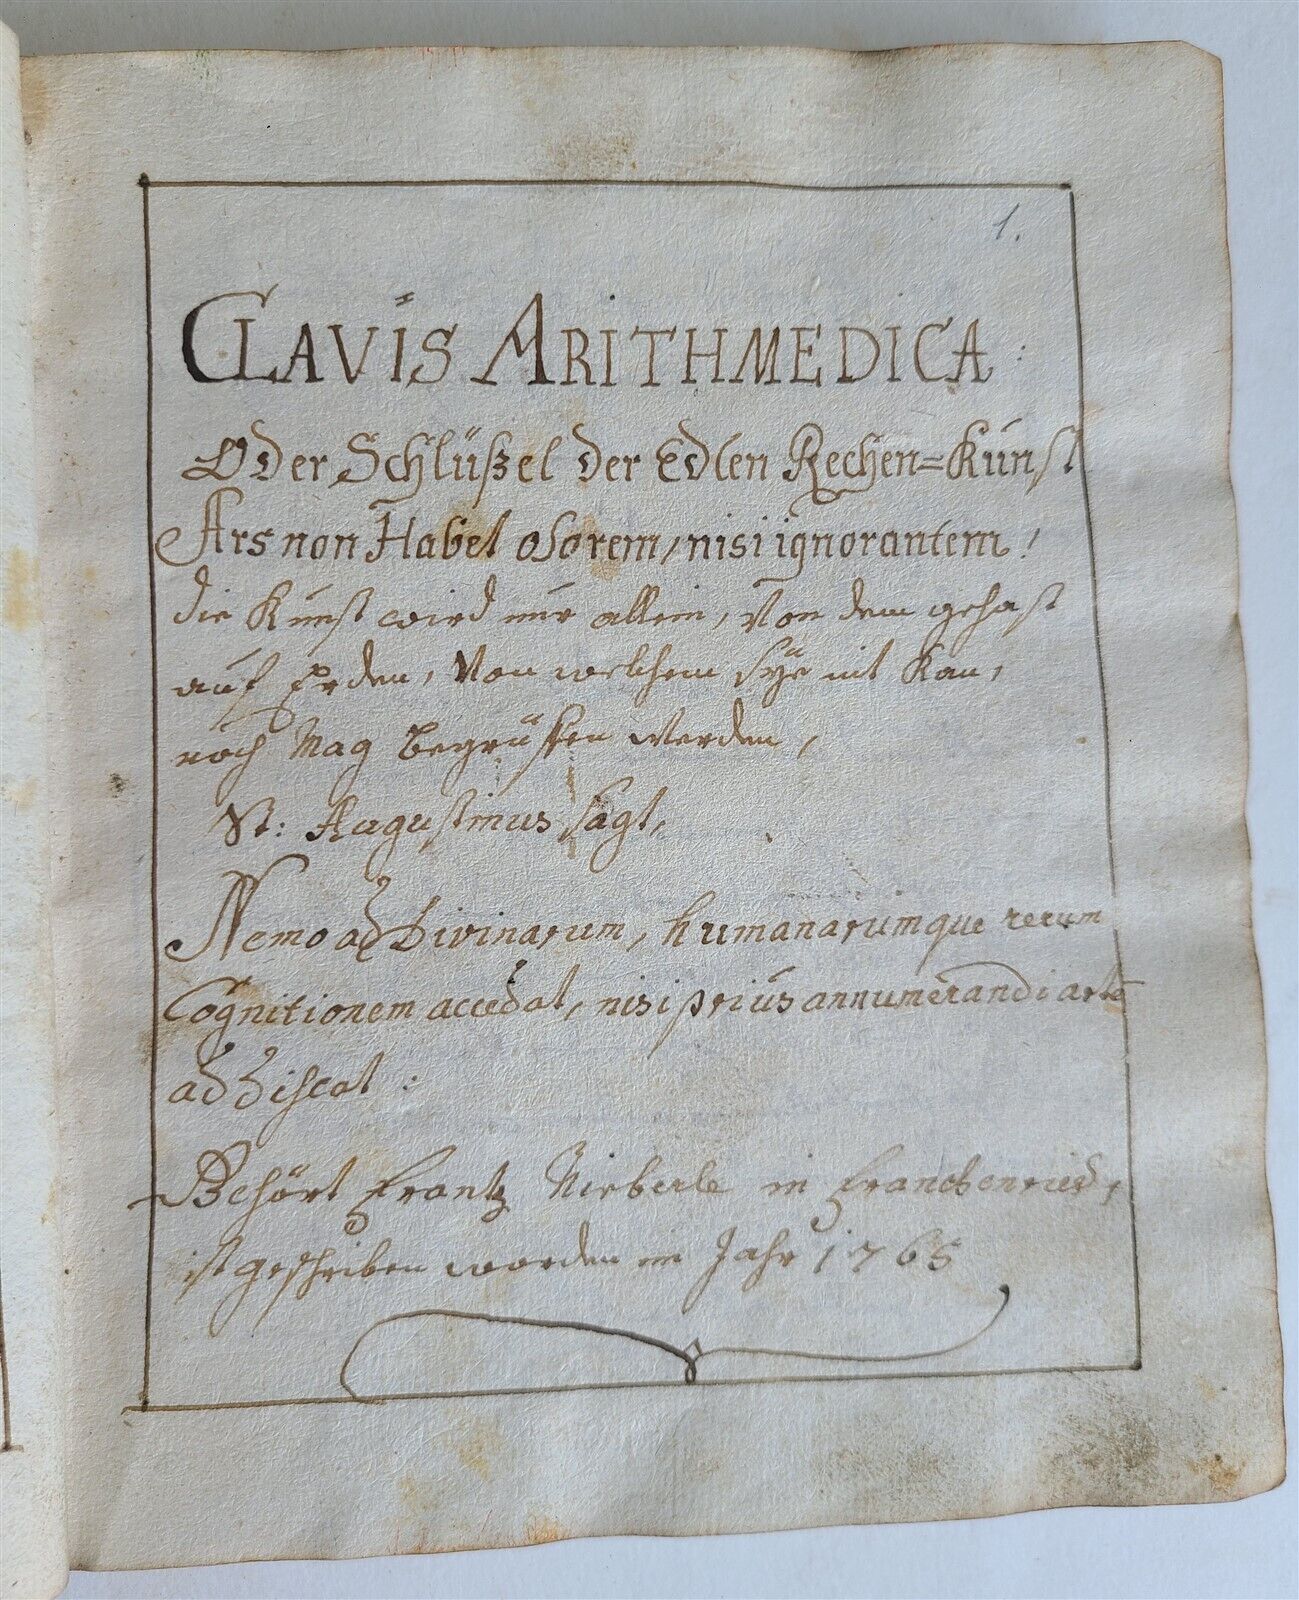 1.
CLAVIS ARITHMEDICA:
Oder Schlüßel der Edlen Rechen=Kunst
Ars non Habet osorem, nisi ignorantem!
die Kunst wird nur allein, Von dem gehast
auf Erden, Von welchem sÿe nit Kan,
noch Mag Begrüssen werden,
St: Augustinus sagt,
Nemo ad Divinarum, humanarumque rerum
Cognitionem accedat, nisi prius annumerandi artē
addiscat:
Behört Frantz Nieberle in Franckenried,
ist geschriben worden im Jahr 1765